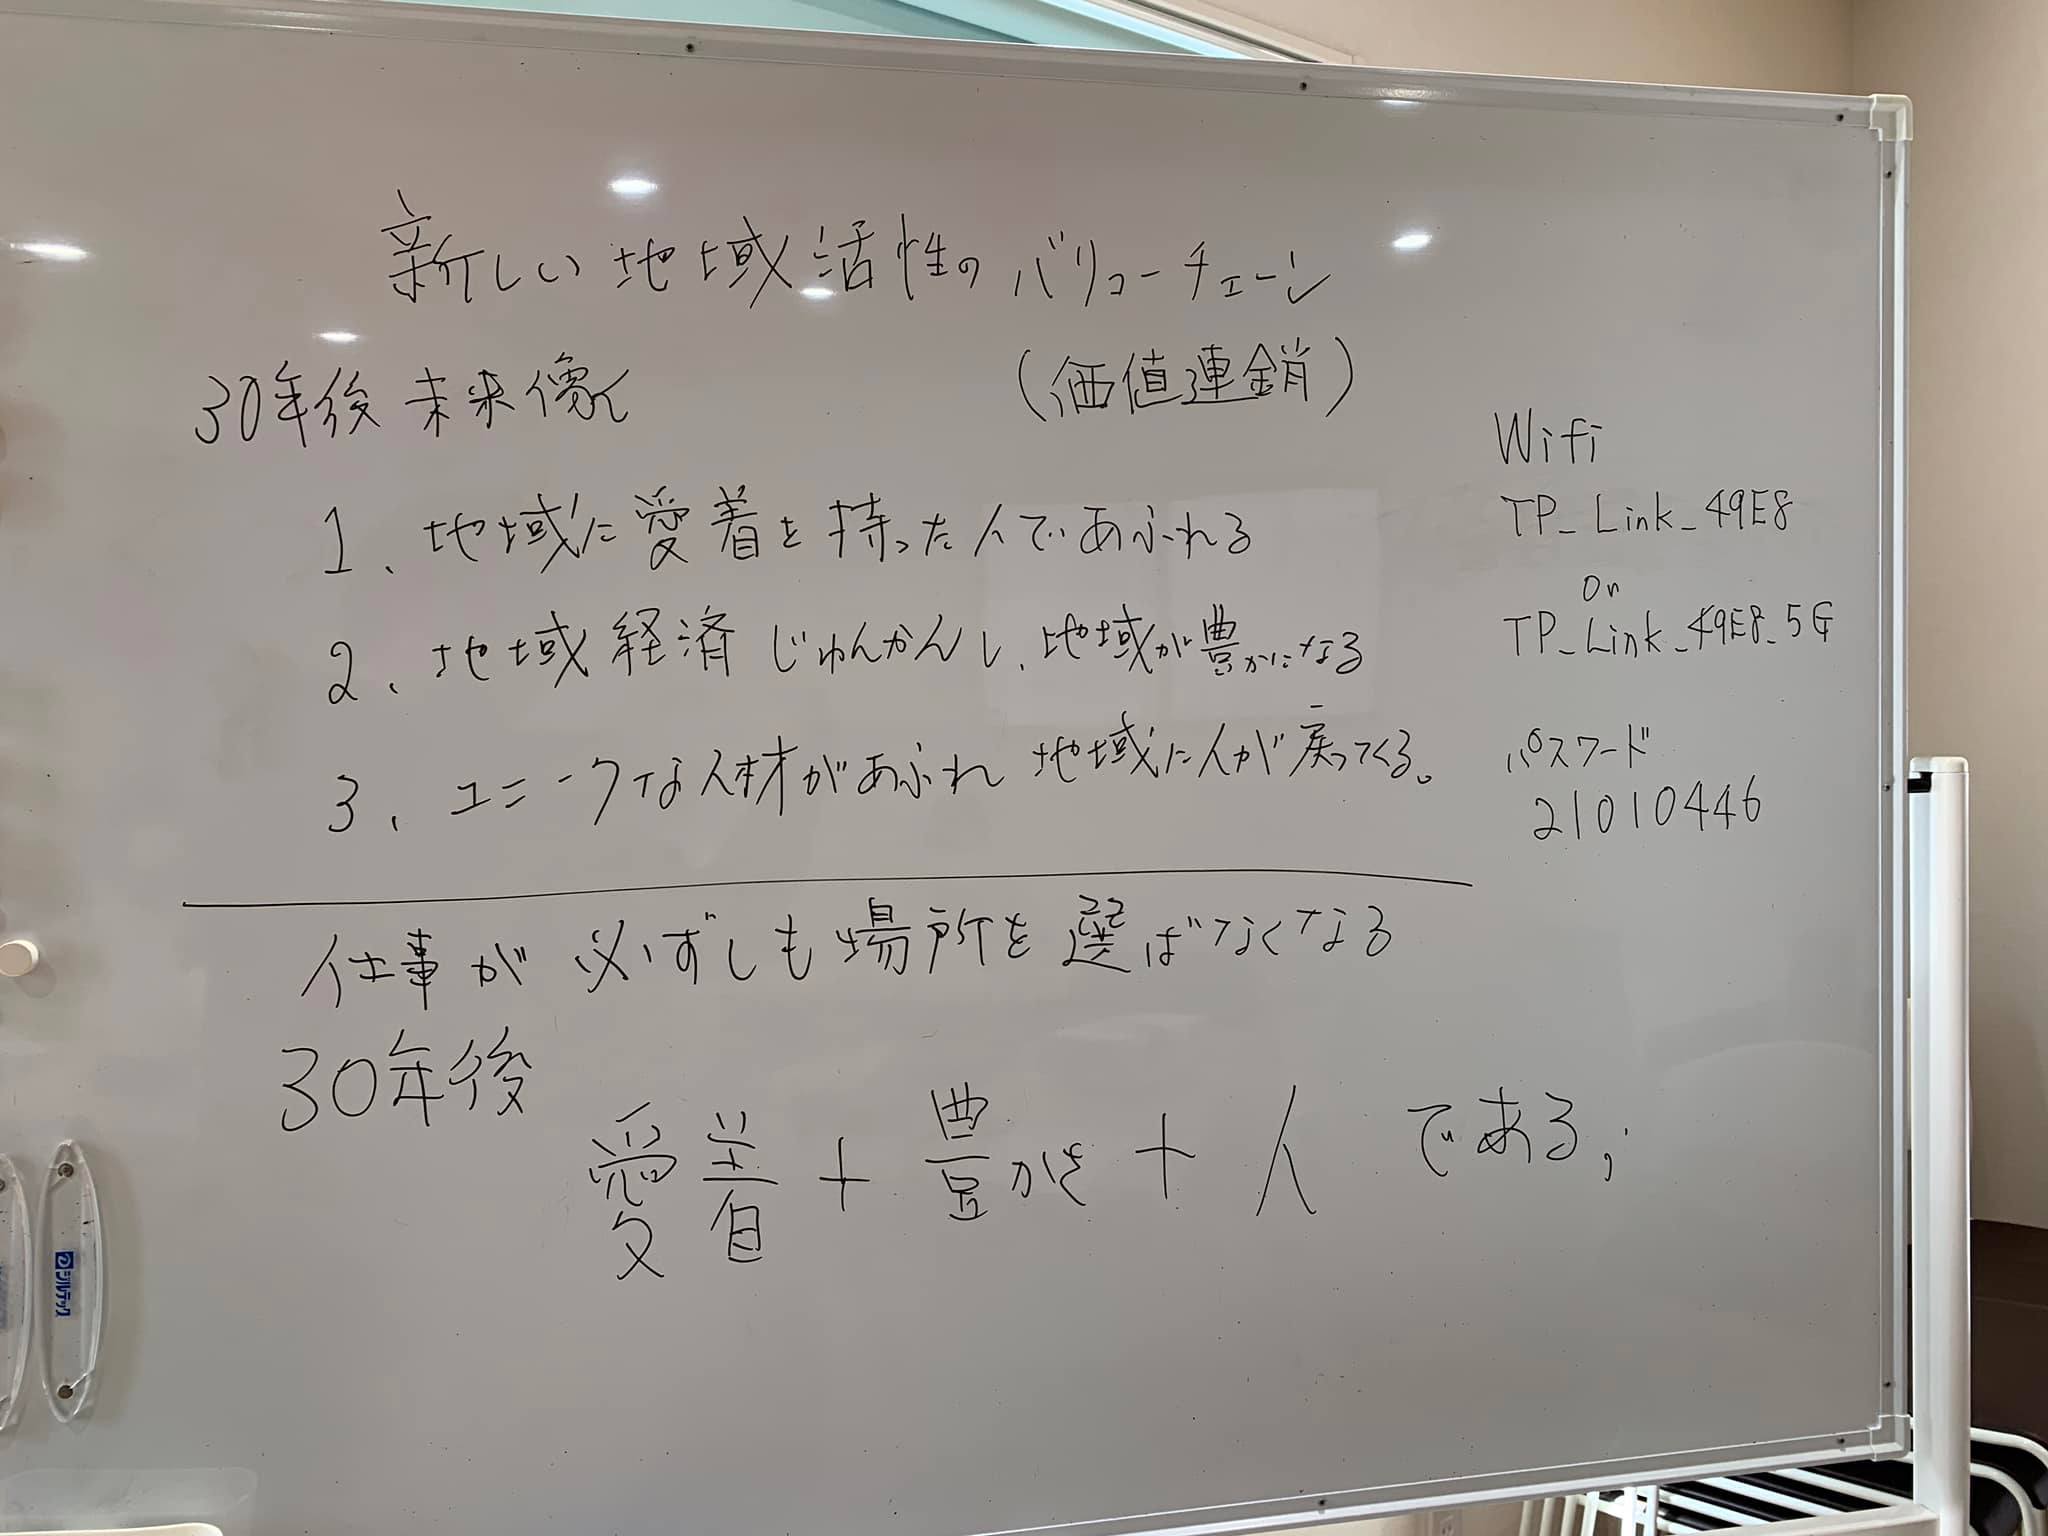 新しい地域活性のバリューチェーン
(価値連鎖)
30年後未来像
1、地域に愛着を持った人であふれる
2、地域経済じゅんかんし、地域が豊かになる
3、ユニークな人材があふれ 地域に人が戻ってくる。
仕事が必ずしも場所を選ばなくなる
30年後
愛着+豊かさ+人である,
Wifi
TP_Link_49E8
or
TP_Link_49E8_5G
パスワード
21010446
シルテック